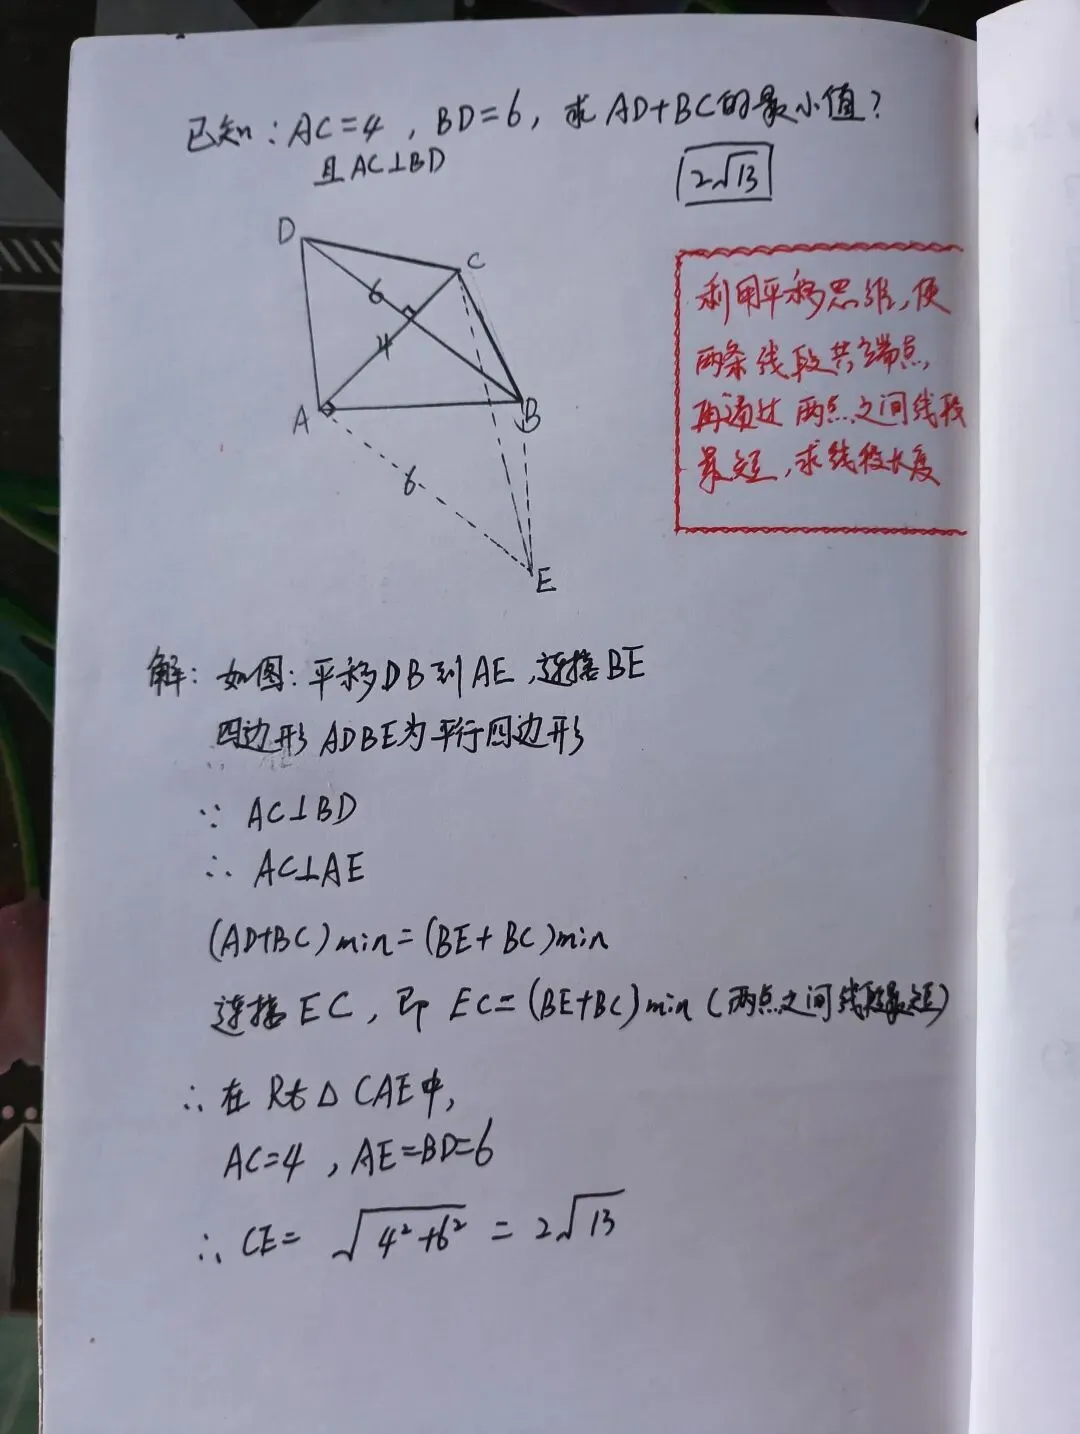 已知：AC=4，BD=6，求AD+BC的最小值？
且AC⊥BD
2√13
D
C
6
4
A
B
6
E
利用平移思维，使
两条线段共端点，
再通过两点之间线段
最短，求线段长度
解：如图：平移DB到AE，连接BE
四边形ADBE为平行四边形
∵ AC⊥BD
∴ AC⊥AE
(AD+BC)min=(BE+BC)min
连接EC，即 EC=(BE+BC)min（两点之间线段最短）
∴在Rt△CAE中，
AC=4，AE=BD=6
∴ CE= √4²+6² = 2√13